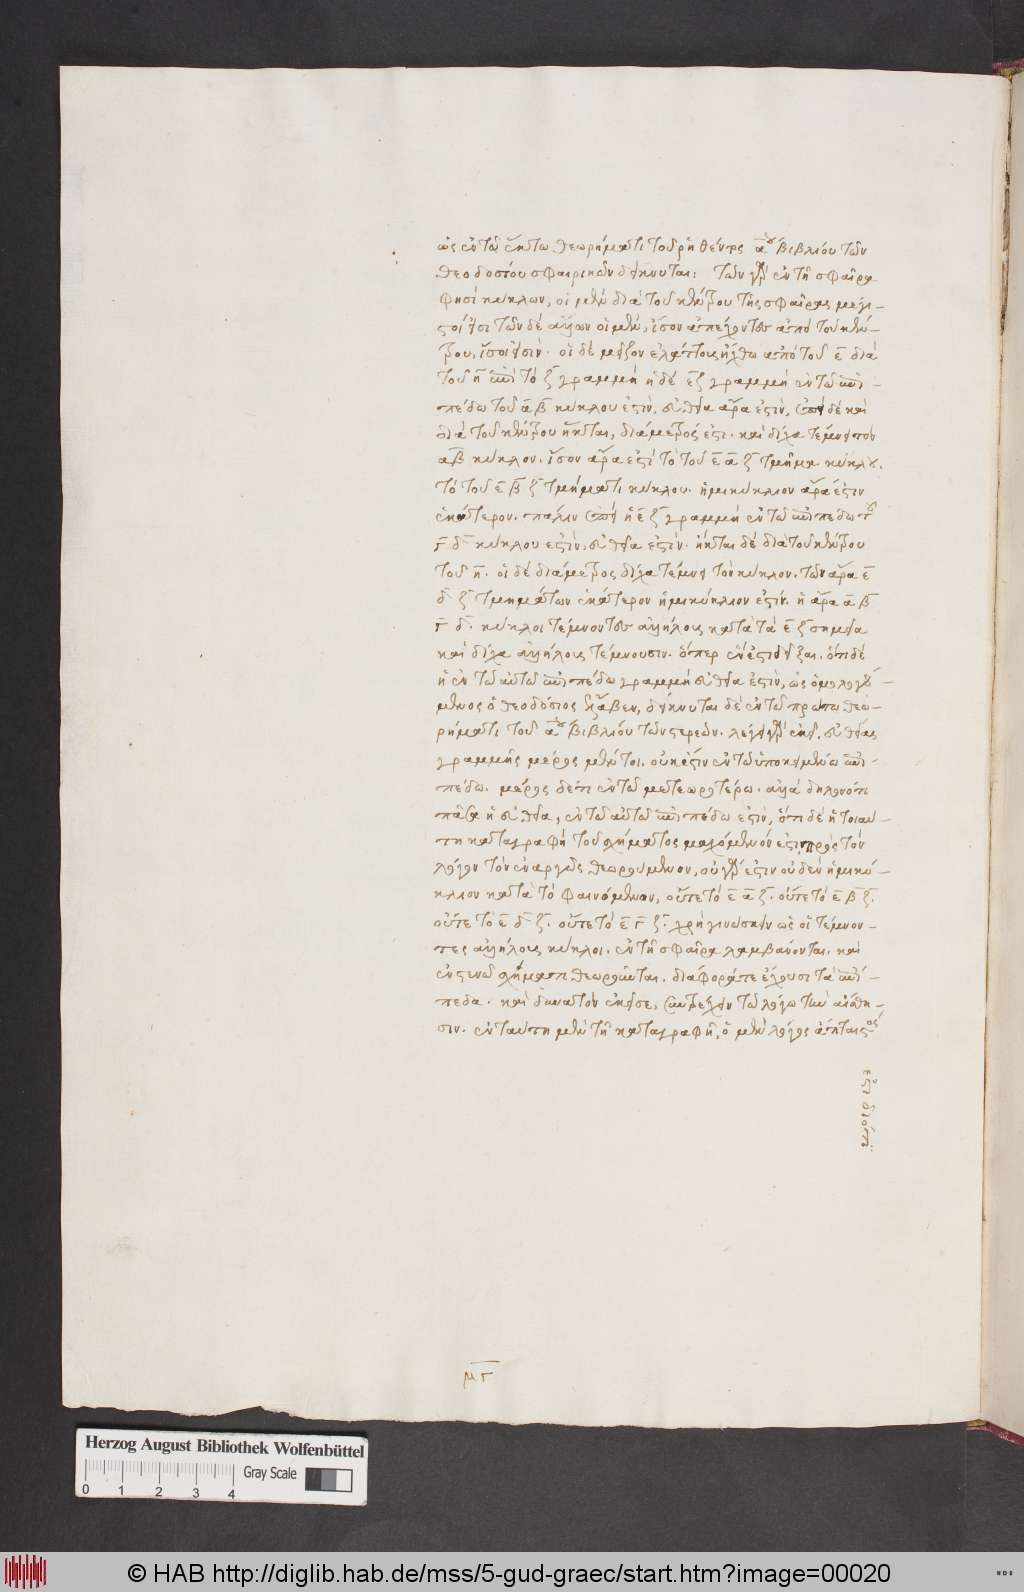 ὡς ἐν τῶ ἕκτω θεωρήματι τοῦ ῥηθέντος α^ου βιβλίου τῶν
θεοδοσίου σφαιρικῶν δείκνυται: τῶν γὰρ ἐν τῆ σφαίρα
φησὶ κύκλων, οἱ μὲν διὰ τοῦ κέντρου τῆς σφαίρας μέγι-
στοί εἰσι τῶν δὲ ἄλλων οἱ μὲν, ἴσον ἀπέχοντες ἀπὸ τοῦ κέν-
τρου, ἴσοι εἰσίν. οἱ δὲ μεῖζον ἐλάττους ἤχθω ἀπὸ τοῦ ε̄ διὰ
τοῦ η̄ ἐπὶ τὸ ζ̄ γραμμὴ ἡ δὲ ε̄ζ̄ γραμμὴ ἐν τῶ ἐπι-
πέδω τοῦ ᾱ β̄ κύκλου ἐστὶν, εὐθεῖα ἄρα ἐστὶν, ἐπεὶ δὲ καὶ
διὰ τοῦ κέντρου ἧκται, διάμετρός ἐστι. καὶ δίχα τέμνει τὸν
ᾱβ̄ κύκλον. ἴσον ἄρα ἐστὶ τὸ τοῦ ε̄ ᾱ ζ̄ τμῆμα κύκλου.
τὸ τοῦ ε̄ β̄ ζ̄ τμήματι κύκλου. ἡμικύκλιον ἄρα ἐστὶν
ἑκάτερον. πάλιν ἐπεὶ ἡ ε̄ ζ̄ γραμμὴ ἐν τῶ ἐπιπέδω τοῦ
γ̄ δ̄ κύκλου ἐστὶν, εὐθεῖα ἐστίν. ἧκται δὲ διὰ τοῦ κέντρου
τοῦ η̄. οἱ δὲ διάμετρος δίχα τέμνει τὸν κύκλον. τῶν ἄρα ε̄
δ̄ ζ̄ τμημάτων ἑκάτερον ἡμικύκλιον ἐστίν. ἡ ἄρα ᾱ β̄
γ̄ δ̄. κύκλοι τέμνοντες ἀλλήλους κατὰ τὰ ε̄ ζ̄ σημεῖα
καὶ δίχα ἀλλήλους τέμνουσιν. ὅπερ ἔδει δεῖξαι. ὅτι δὲ
ἡ ἐν τῶ αὐτῶ ἐπιπέδω γραμμὴ εὐθεῖα ἐστὶν, ὡς ὁμολογού-
μενος ὁ θεοδόσιος ἔλαβεν, δείκνυται δὲ ἐν τῶ πρώτω θεω-
ρήματι τοῦ α^ου βιβλίου τῶν στερεῶν. λέγει γὰρ ἐκεῖ. εὐθείας
γραμμῆς μέρος μέν τοι. οὐκ ἔστιν ἐν τῶ ὑποκειμένω ἐπι-
πέδω. μέρος δέ τι ἐν τῶ μετεωροτέρω. ἀλλὰ δηλονότι
πᾶσα ἡ εὐθεῖα, ἐν τῶ αὐτῶ ἐπιπέδω ἐστὶν, ὅτι δὲ ἡ τοιαύ-
τη καταγραφὴ τοῦ σχήματος μαχόμενόν ἐστι πρὸς τὸν
λόγον τὸν ἐναργῶς θεωρούμενον, οὐ γὰρ ἐστιν οὐδὲν ἡμικύ-
κλιον κατὰ τὸ φαινόμενον, οὔτε τὸ ε̄ ᾱ ζ̄. οὔτε τὸ ε̄ β̄ ζ̄.
οὔτε τὸ ε̄ δ̄ ζ̄. οὔτε τὸ ε̄ γ̄ ζ̄. χρὴ γινώσκειν ὡς οἱ τέμνον-
τες ἀλλήλους κύκλοι. ἐν τῆ σφαίρα λαμβάνονται. καὶ
ἐν στενῶ σχήματι θεωροῦνται. διαφοράν τε ἔχουσι τὰ ἐπί-
πεδα. καὶ δυνατὸν ἐκεῖσε, συντρέχειν τῶ λόγω τὴν αἴσθη-
σιν. ἐν ταύτη μὲν τῆ καταγραφῆ, ὁ μὲν λόγος ἄπταιστος
ἐστι διότι
μγ
Herzog August Bibliothek Wolfenbüttel
Gray Scale
0 1 2 3 4
© HAB http://diglib.hab.de/mss/5-gud-graec/start.htm?image=00020